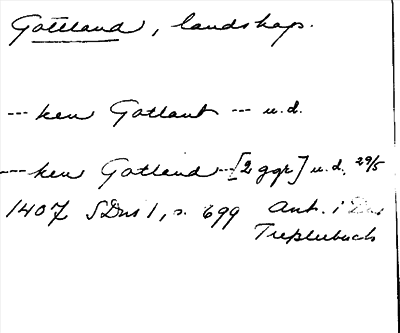 Gottland, landskap.
--- ken Gotlant --- u.d.
--- ken Gotland --- [2 ggr] u.d. 29/5
1407 SDns 1, s. 699 Ant. i
Tresslerbuch